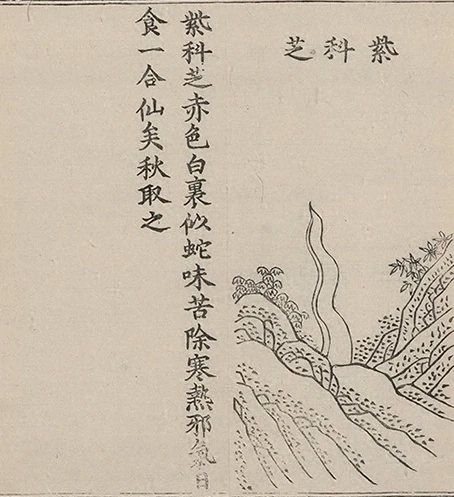 紫科芝
紫科芝赤色白裏似蛇味苦除寒熱邪氣日
食一合仙矣秋取之